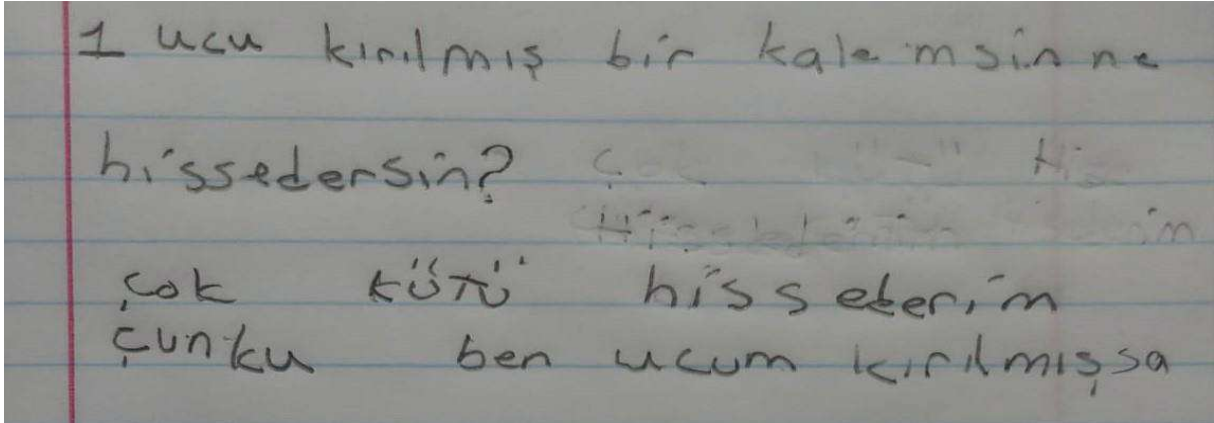 1 ucu kırılmış bir kalemsin ne
hissedersin?
çok kötü hissederim
çunku ben ucum kırılmışsa